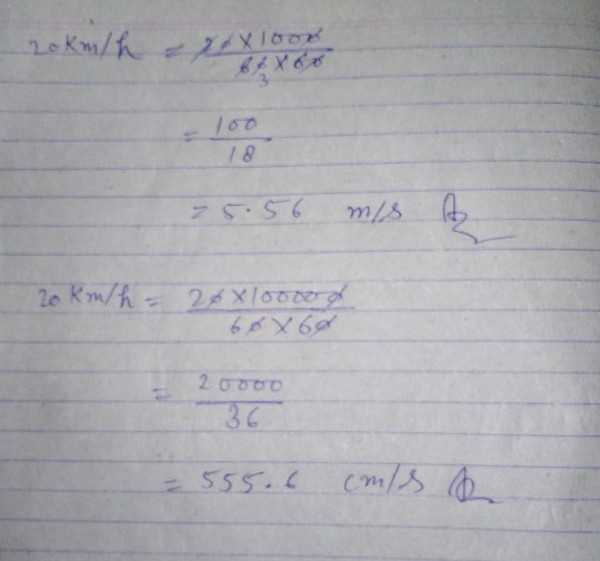 20 Km/h = 20 × 1000 / 60 × 60
3
= 100 / 18
= 5.56 m/s
20 Km/h = 20 × 100000 / 60 × 60
= 20000 / 36
= 555.6 cm/s